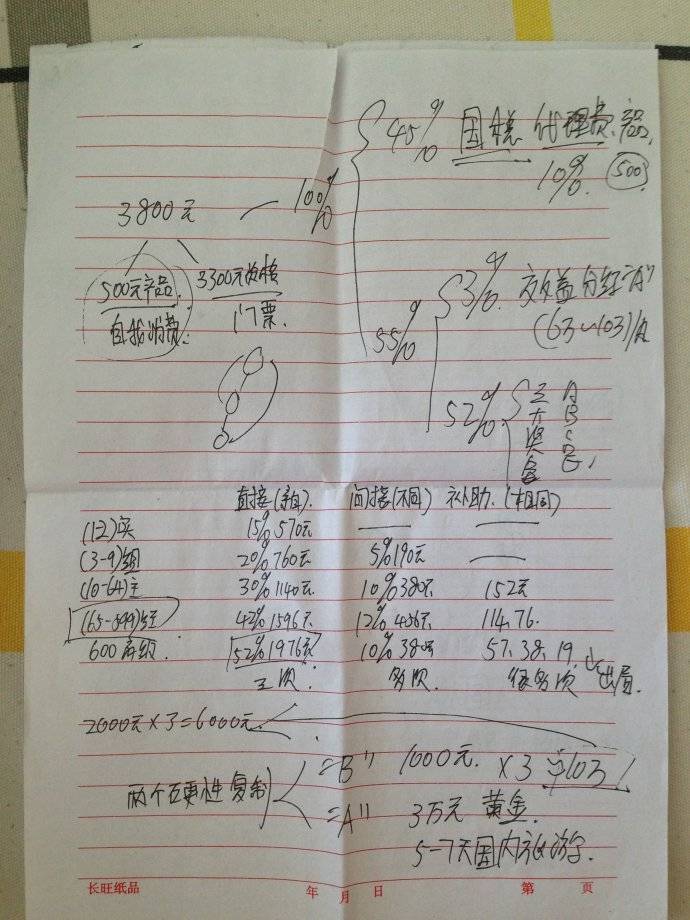 45% 国税 代理费.产品.
10%. 500
3800元 — 100%
500元产品. 3300元资格
自我消费. 门票.
55%
3%. 效益分红"A"
(6万~10万)/月
52% 三大奖金 A B C D E
直接(亲自). 间接(不同) 补助.(相同)
(1-2)实 15% 570元 — —
(3-9)组 20% 760元 5% 190元 —
(10-64)主 30% 1140元. 10% 380元 152元
(65-599)经 42% 1596元 12% 456元 114.76.
600高级. 52% 1976元 10% 380元 57.38.19.
三次. 多次. 很多次 出局.
2000元×3=6000元.
两个百更性复制
=B" 1000元. ×3 平10万
=A" 3万元 黄金.
5-7天国内旅游.
长旺纸品 年 月 日 第 页